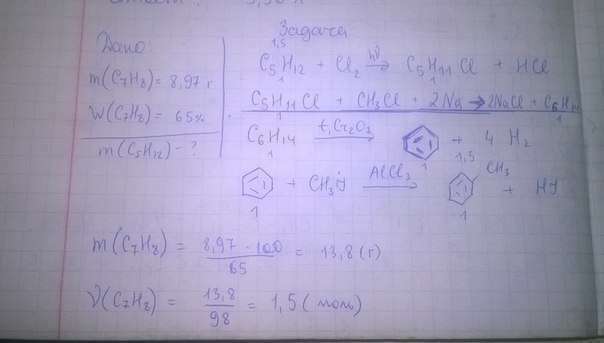 Задача
Дано:
m(C7H8) = 8,97 г
W(C7H8) = 65%
m(C5H12) - ?
1,5
C5H12 + Cl2 →hν C5H11Cl + HCl
1 1
C5H11Cl + CH3Cl + 2Na → 2NaCl + C6H14
1
C6H14 →t, Cr2O3 + 4 H2
1 1 1,5
+ CH3J →AlCl3 CH3 + HJ
1 1
m(C7H8) = 8,97 · 100 / 65 = 13,8 (г)
ν(C7H8) = 13,8 / 98 = 1,5 (моль)